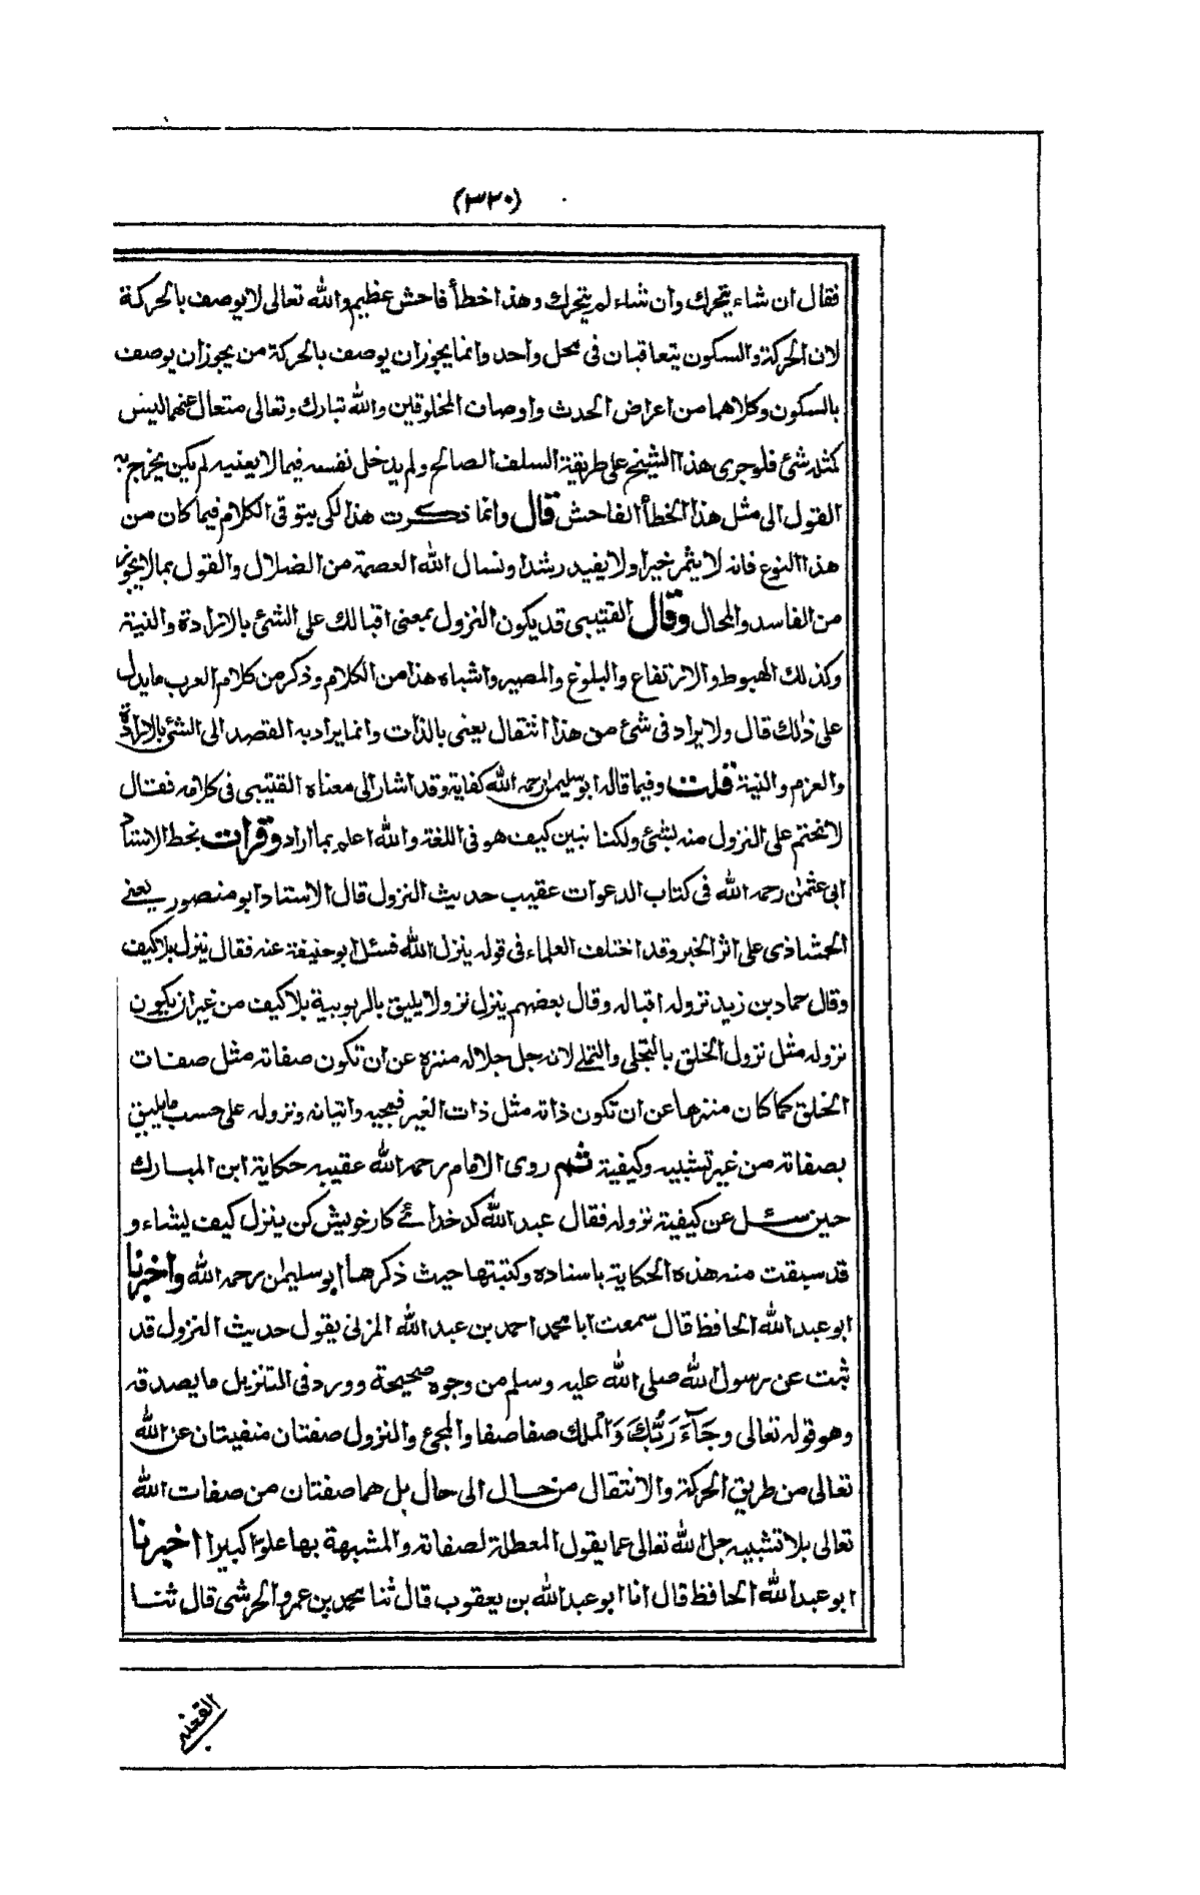 (٣٢٠)
فقال ان شاء يتحرك وان شاء لم يتحرك وهذا خطأ فاحش عظيم والله تعالى لا يوصف بالحركة
لان الحركة والسكون يتعاقبان فى محل واحد وانما يجوز ان يوصف بالحركة من يجوز ان يوصف
بالسكون وكلاهما من اعراض الحدث واوصاف المخلوقين والله تبارك وتعالى متعال عنهما ليس
كمثله شئ فلو جرى هذا الشيخ على طريقة السلف الصالح ولم يدخل نفسه فيما لا يعنيه لم يكن يخرج به
القول الى مثل هذا الخطأ الفاحش قال وانما ذكرت هذا لكى يتوقى الكلام فيما كان من
هذا النوع فانه لا يثمر خيرا ولا يفيد رشدا ونسال الله العصمة من الضلال والقول بما لا يجوز
من الفاسد والمحال وقال القتيبى قد يكون النزول بمعنى اقبالك على الشئ بالارادة والنية
وكذلك الهبوط والارتفاع والبلوغ والمصير واشباه هذا من الكلام وذكر من كلام العرب ما يدل
على ذلك قال ولا يراد فى شئ من هذا انتقال يعنى بالذات وانما يراد به القصد الى الشئ بالارادة
والعزم والنية قلت وفيما قاله ابو سليمن رحمه الله كفاية وقد اشار الى معناه القتيبى فى كلامه فقال
لا نحتم على النزول منه بشئ ولكنا نبين كيف هو فى اللغة والله اعلم بما اراد وقرات بخط الاستاد
ابى عثمن رحمه الله فى كتاب الدعوات عقيب حديث النزول قال الاستاد ابو منصور يعنے
الحمشاذى على اثر الخبر وقد اختلف العلماء فى قوله ينزل الله فسئل ابو حنيفة عنه فقال ينزل بلا كيف
وقال حماد بن زيد نزوله اقباله وقال بعضهم ينزل نزولا يليق بالربوبية بلا كيف من غير ان يكون
نزوله مثل نزول الخلق بالتجلى والتملے لانه جل جلاله منزه عن ان تكون صفاته مثل صفات
الخلق كما كان منزها عن ان تكون ذاته مثل ذات الغير فمجيه واتيانه ونزوله على حسب ما يليق
بصفاته من غير تشبيه وكيفية ثم روى الامام رحمه الله عقيبه حكاية ابن المبارك
حين سئل عن كيفية نزوله فقال عبد الله كد خدائے كار خويش كن ينزل كيف يشاء و
قد سبقت منه هذه الحكاية باسناده وكتبتها حيث ذكرها ابو سليمن رحمه الله واخبرنا
ابو عبد الله الحافظ قال سمعت ابا محمد احمد بن عبد الله المزنى يقول حديث النزول قد
ثبت عن رسول الله صلى الله عليه وسلم من وجوه صحيحة وورد فى التنزيل ما يصدقه
وهو قوله تعالى وجَآءَ رَبُّكَ وَالْملك صفا صفا والمجئ والنزول صفتان منفيتان عن الله
تعالى من طريق الحركة والانتقال من حال الى حال بل هما صفتان من صفات الله
تعالى بلا تشبيه جل الله تعالى عما يقول المعطلة لصفاته والمشبهة بها علوا كبيرا اخبرنا
ابو عبد الله الحافظ قال انا ابو عبد الله بن يعقوب قال ثنا محمد بن عمرو الحرشى قال ثنا
القعنبى